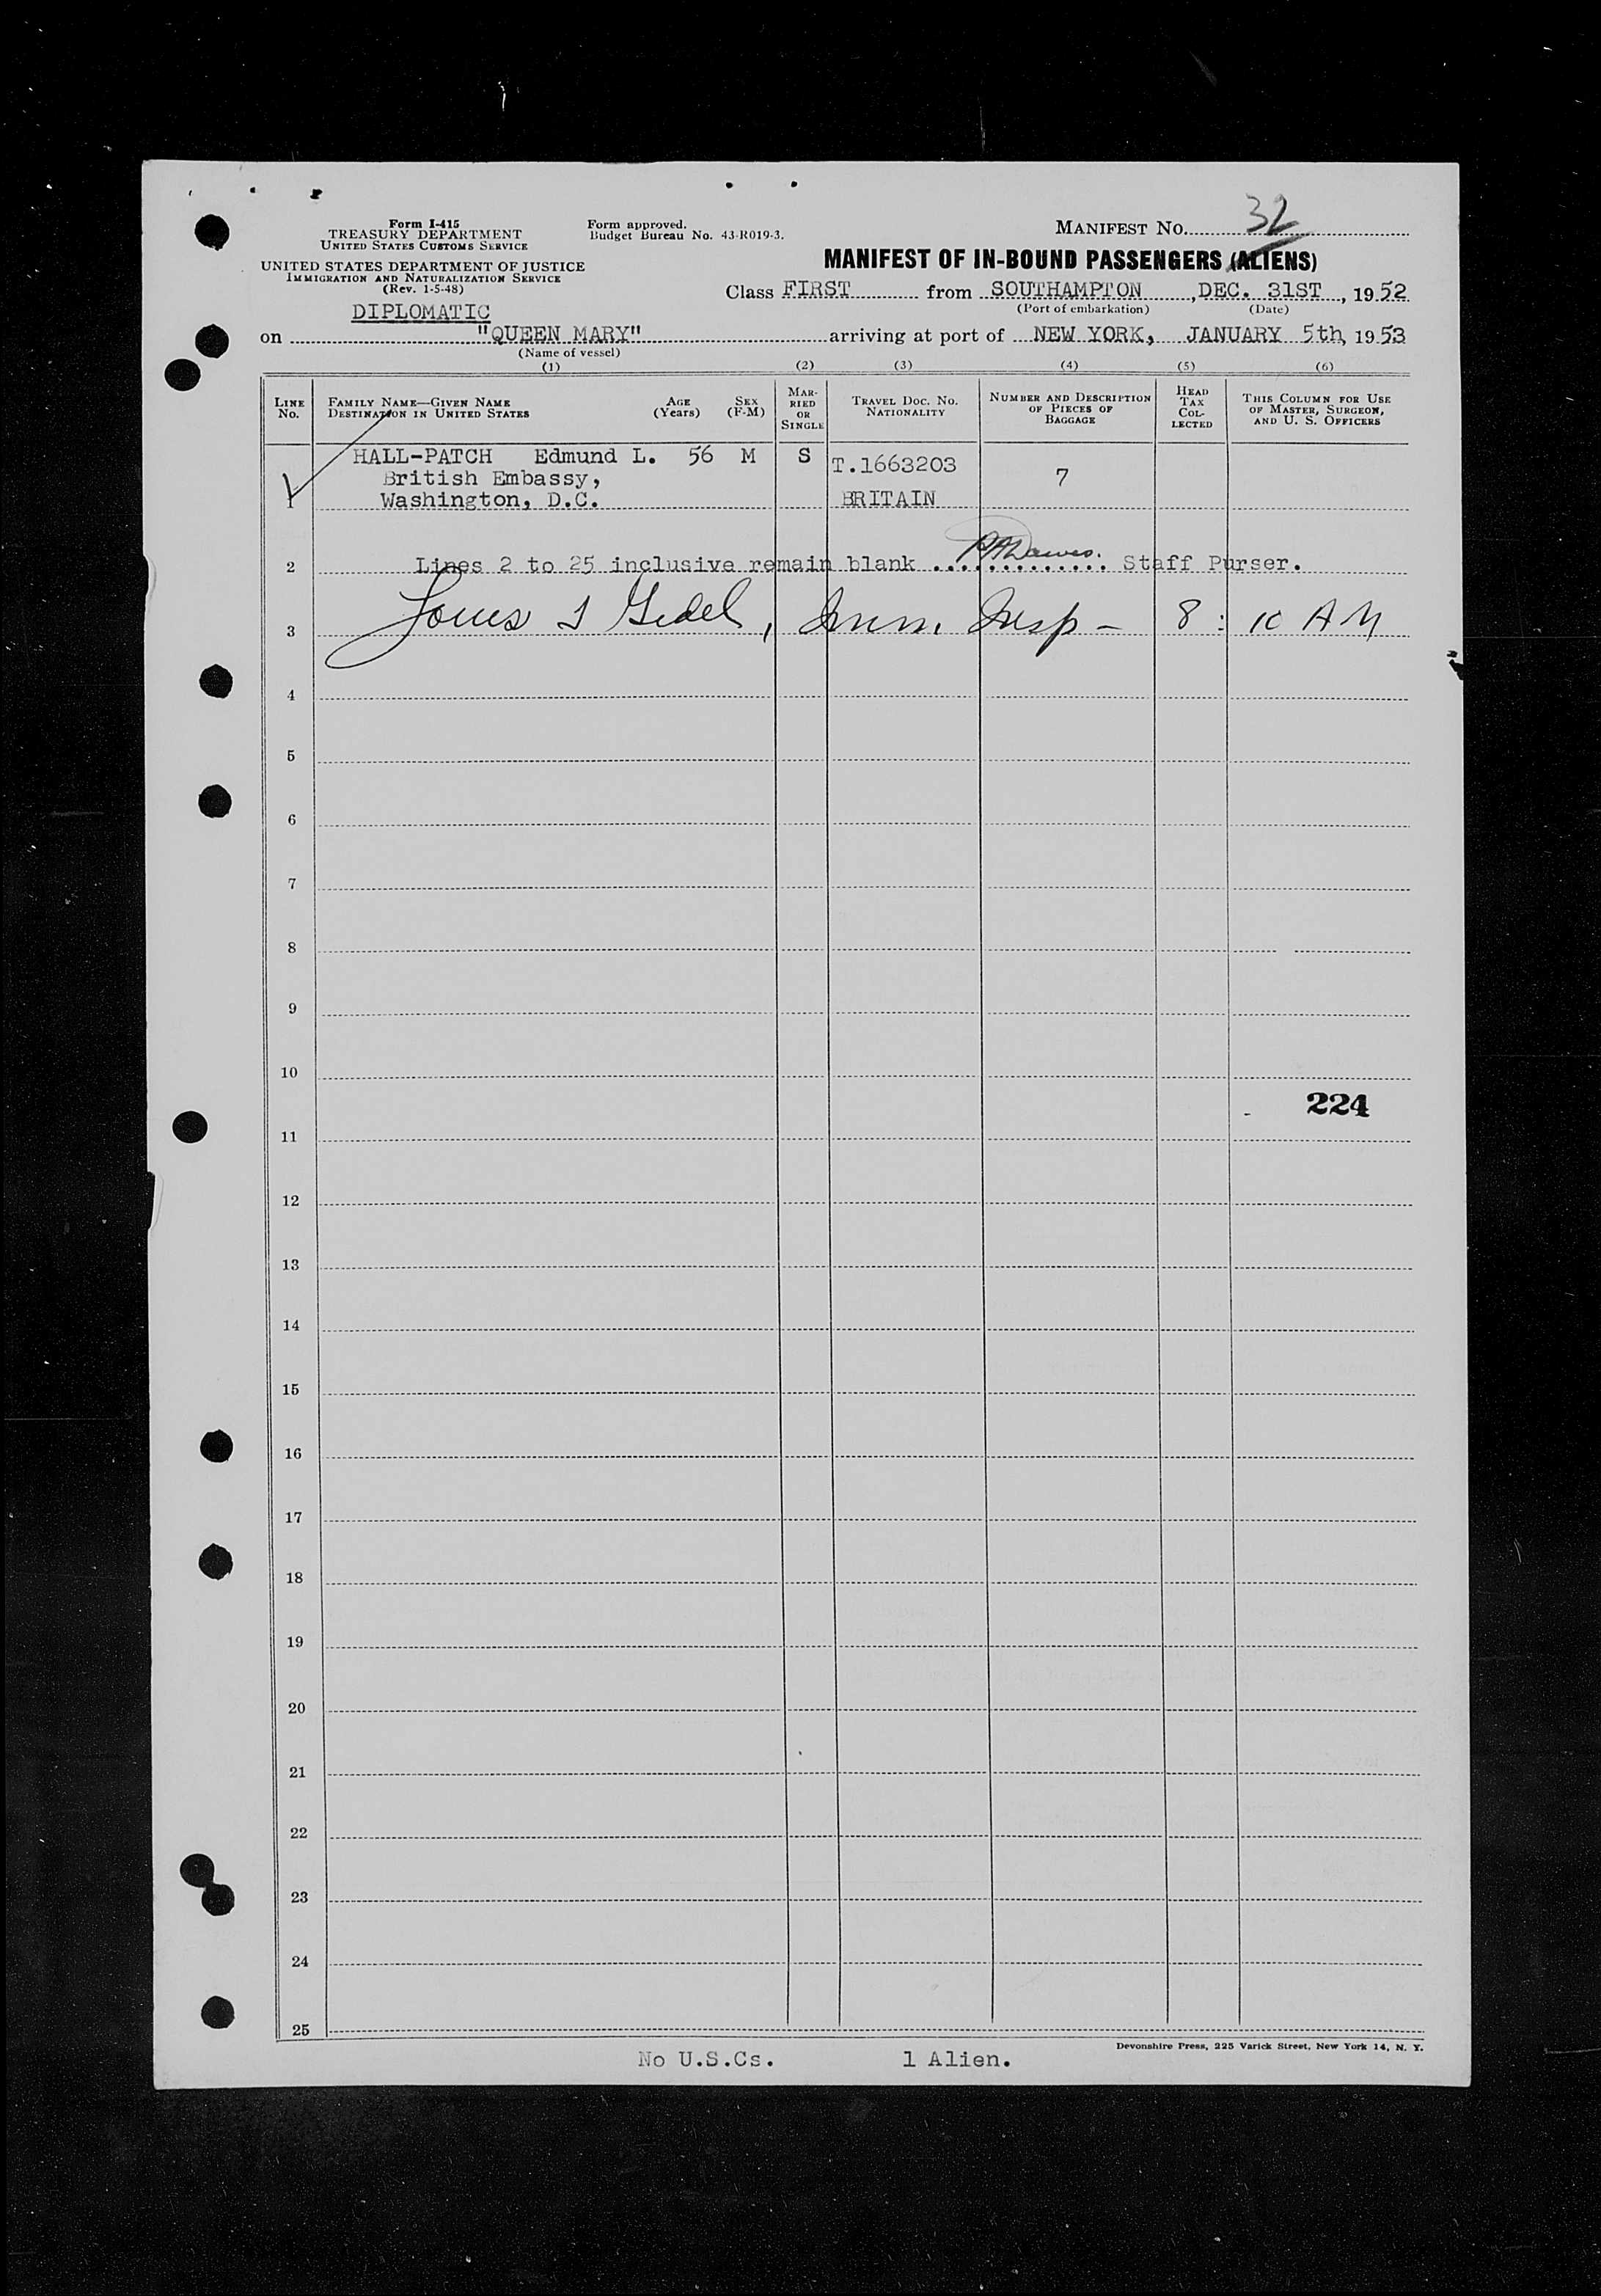 Form I-415
TREASURY DEPARTMENT
UNITED STATES CUSTOMS SERVICE
UNITED STATES DEPARTMENT OF JUSTICE
IMMIGRATION AND NATURALIZATION SERVICE
(Rev. 1-5-48)
Form approved.
Budget Bureau No. 43-R019-3.
MANIFEST NO. 32
MANIFEST OF IN-BOUND PASSENGERS (ALIENS)
Class FIRST from SOUTHAMPTON, DEC. 31ST, 1952
(Port of embarkation) (Date)
DIPLOMATIC
on "QUEEN MARY" arriving at port of NEW YORK, JANUARY 5th, 1953
(Name of vessel)
(1) (2) (3) (4) (5) (6)
LINE No. FAMILY NAME—GIVEN NAME DESTINATION IN UNITED STATES AGE (Years) SEX (F-M) MARRIED OR SINGLE TRAVEL DOC. NO. NATIONALITY NUMBER AND DESCRIPTION OF PIECES OF BAGGAGE HEAD TAX COLLECTED THIS COLUMN FOR USE OF MASTER, SURGEON, AND U. S. OFFICERS
HALL-PATCH Edmund L. 56 M S T.1663203 7
British Embassy,
1 Washington, D.C. BRITAIN
2 Lines 2 to 25 inclusive remain blank ............. Staff Purser.
3 Louis Imm. Insp - 8:10 AM
4
5
6
7
8
9
10
224
11
12
13
14
15
16
17
18
19
20
21
22
23
24
25
Devonshire Press, 225 Varick Street, New York 14, N. Y.
No U.S.Cs. 1 Alien.